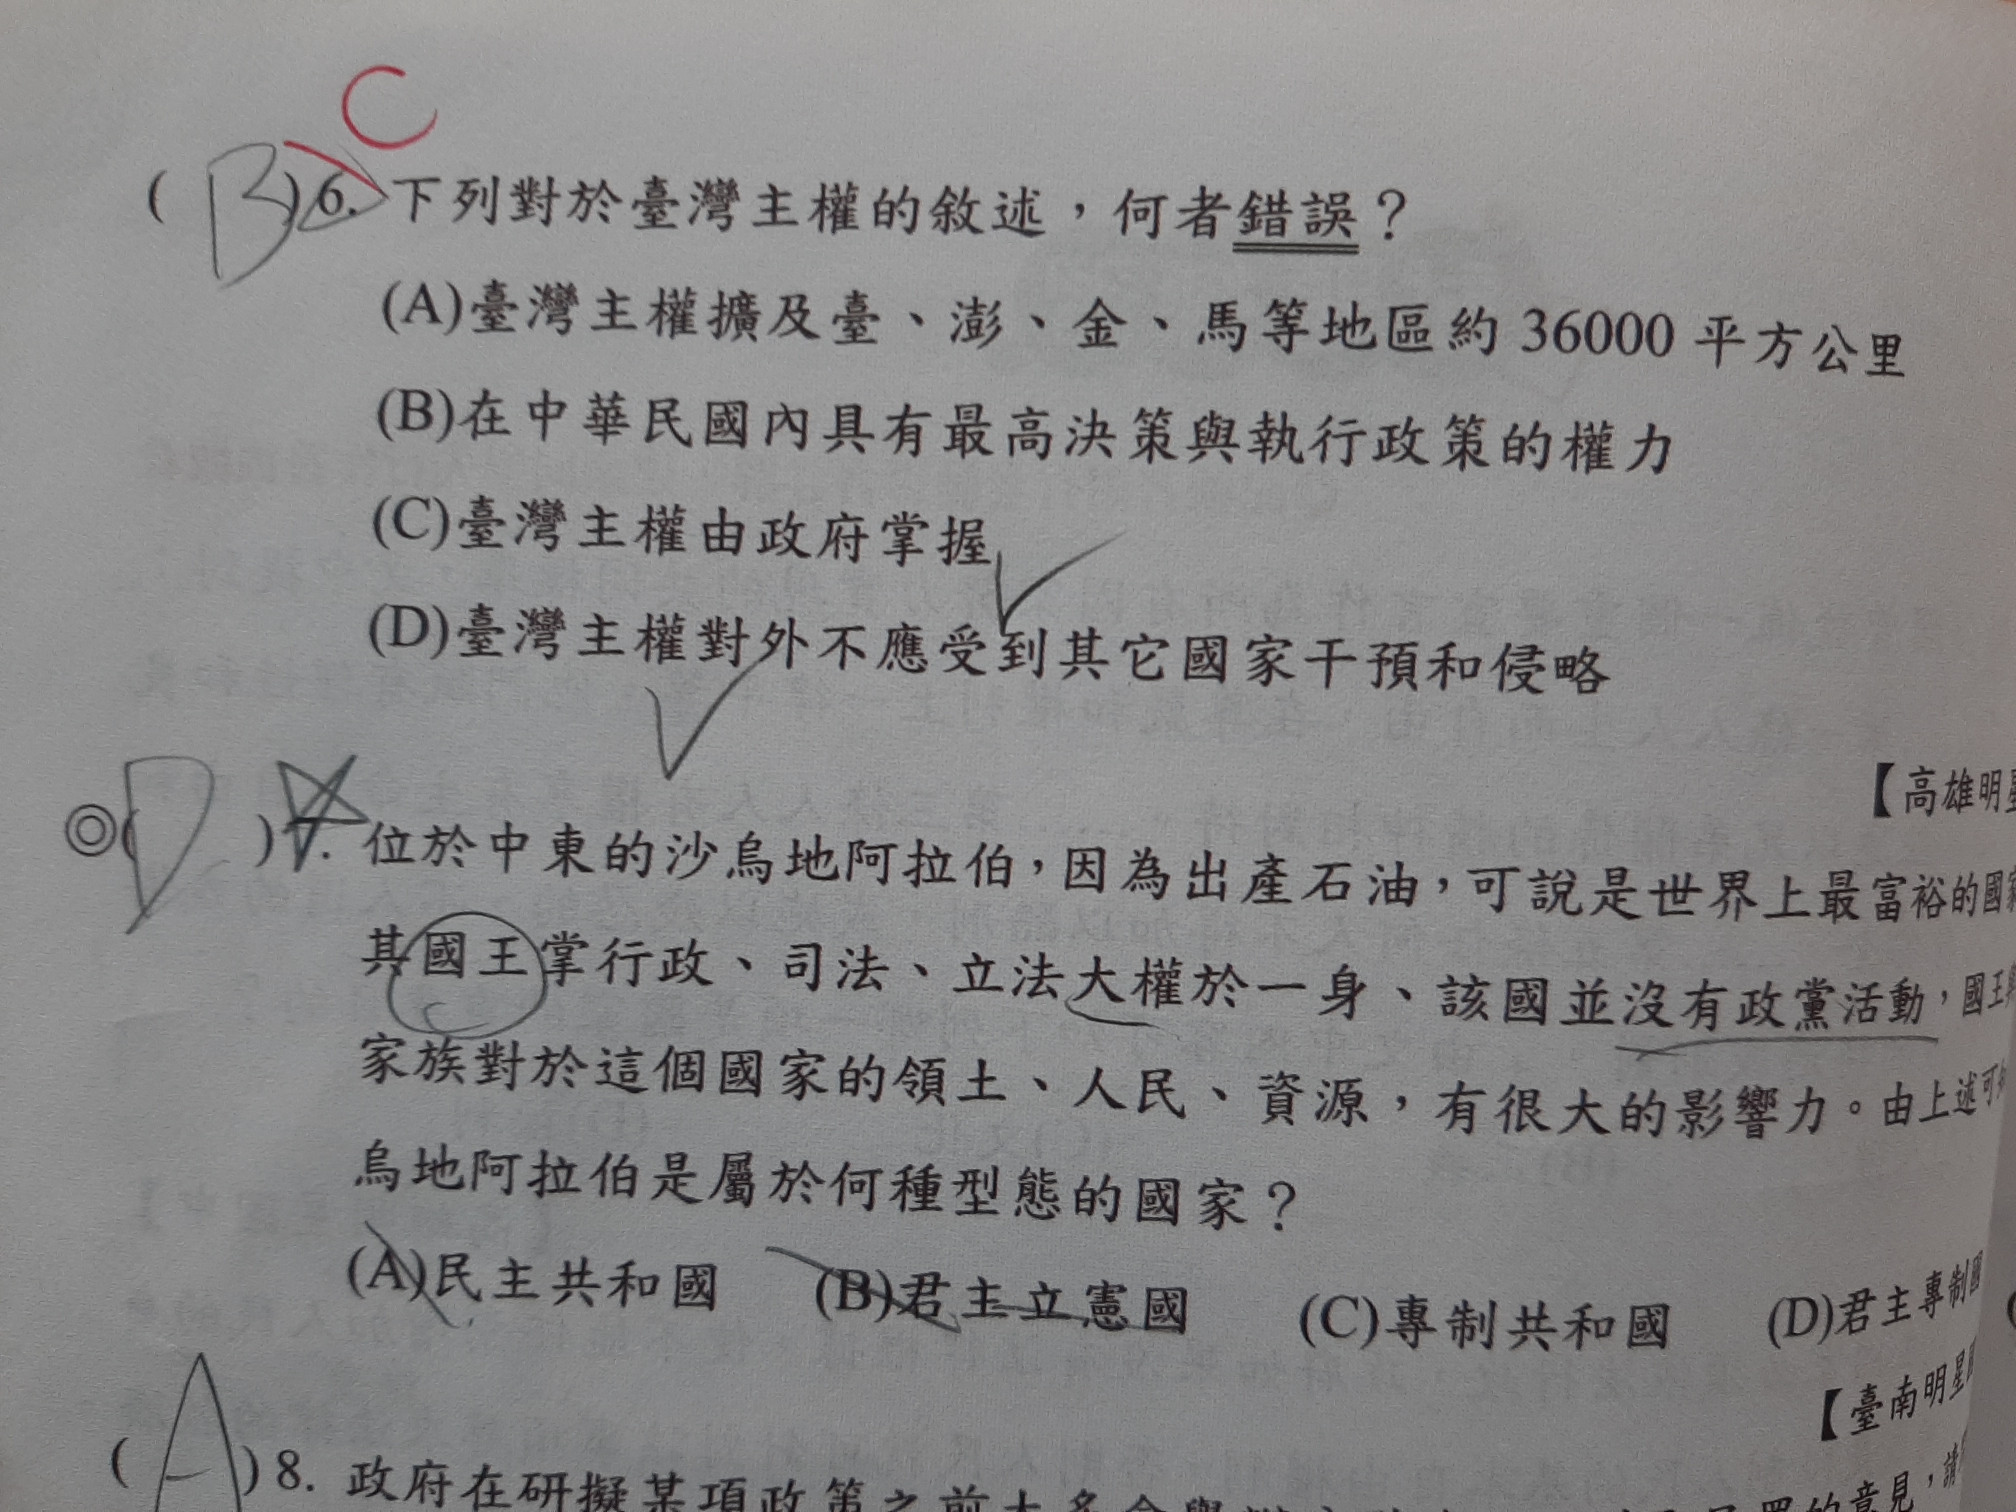 C
( B )6. 下列對於臺灣主權的敘述，何者錯誤？
(A)臺灣主權擴及臺、澎、金、馬等地區約 36000 平方公里
(B)在中華民國內具有最高決策與執行政策的權力
(C)臺灣主權由政府掌握
(D)臺灣主權對外不應受到其它國家干預和侵略
【高雄明星
◎( D )7. 位於中東的沙烏地阿拉伯，因為出產石油，可說是世界上最富裕的國家
其國王掌行政、司法、立法大權於一身、該國並沒有政黨活動，國王與
家族對於這個國家的領土、人民、資源，有很大的影響力。由上述可知
烏地阿拉伯是屬於何種型態的國家？
(A)民主共和國 (B)君主立憲國 (C)專制共和國 (D)君主專制國
【臺南明星
( A )8. 政府在研擬某項政策之前大多會與
的意見，請